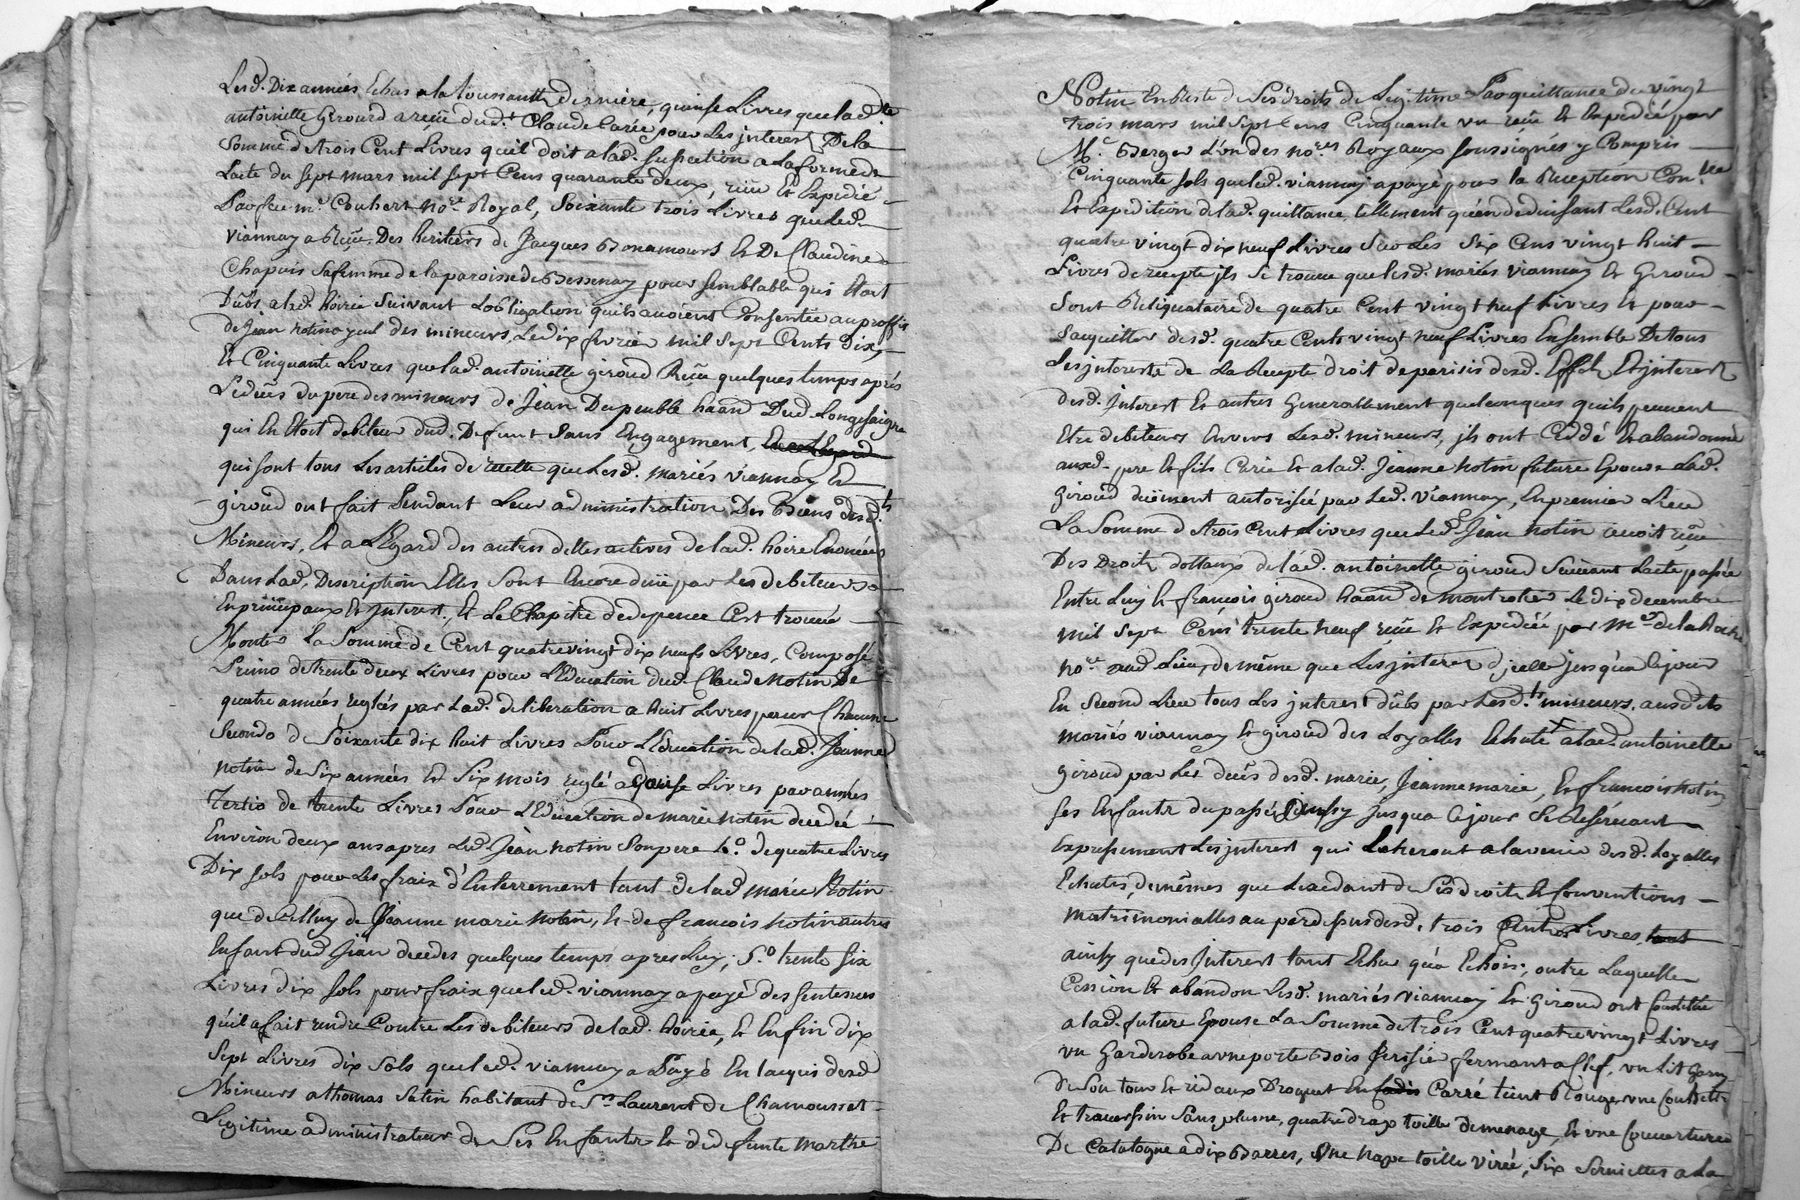 Lesd. Dix années Echus a la toussaintt derniere, quinse Livres que lad.te
antoinette Giroud a reçue dud.t Claude Carié pour Les jnterest De la
Somme de trois Cent Livres qu'il doit a lad. succetion a La forme de
Lacte du sept mars mil sept Cens quarante deux, reçu Et Expedié
Par feu m.e Couhert no.re Royal, Soixante trois Livres que Led.
Viannay a Reçue Des heritiers de Jacques Bonamours Et De Claudine
Chapuis sa femme de la paroisse de Bessenay pour semblable qui Etoit
Dûbs a lad. hoirie suivant Lobligation quils avoient Consentie au proffit
de Jean notin ayeul des mineurs, Le dix fevrier mil sept Cents Dix,
Et Cinquante Livres que lad. antoinette giroud Reçu quelques temps aprés
Le déces du pere des mineurs de Jean Dupeuble haant Dud. Longesaigne
qui En Etoit debiteur dud. Defunt sans Engagement,
qui sont tous Les articles de recette que Lesd. mariés viannay Et
giroud ont fait Pendant Leur administration Des Biens desd.ts
Mineurs, Et a L'Egard des autres dettes actives de lad. hoirie Enoncées
Dans Lad. Description Elles sont Encore düe par Les debiteurs
En principaux Et jnterest, Et Le Chapitre de depence C'est trouvé
Monter la Somme de Cent quatrevingt dix neuf Livres, Composé
Primo de trente deux Livres pour L'Education dud. Claude Notin De
quatre années reglées par Lad. deliberation a huit Livres pour Chacune
Secondo de Soixante dix huit Livres Pour L'Education de lad. Jeanne
notin de six années Et six mois reglé a douse Livres par années
Tertio de trente Livres Pour L'Education de marie notin decedée
Environ deux ans apres Led. Jean notin Son pere 4.o de quatre Livres
Dix sols pour Les frais d'Enterrement tant de lad. marie Notin
que de Celluy de Jeanne marie notin, Et de françois notin autres
Enfant dud. Jean decedes quelques temps apres Luy; 5.o trente six
Livres dix sols pour fraix que Led. viannay a payé des sentences
qu'il a fait rendre Contre Les debiteurs de lad. hoirie, Et Enfin dix
sept Livres dix sols que Led. viannay a Payé En lacquis desd.
Mineurs a thomas Satin habitant de S.t Laurent de Chamousset
Legitime administrateur de Ses Enfants Et de defunte marthe
Notin En Reste de Ses droits de Legitime Par quittance du vingt
trois mars mil sept Cens Cinquante un reçu Et Expediée par
M.e Berger L'un des no.res Royaux soussignés y Compris
Cinquante sols que Led. viannay a payé pour la Reception Con.lle
Et Expedition de lad. quittance tellement qu'en deduisant Lesd. Cent
quatre vingt dix neuf Livres sur Les six Cens vingt huit
Livres de recepte jls se trouve que Lesd. mariés viannay Et Giroud
sont Reliquataire de quatre Cent vingt neuf Livres Et pour
sacquitter desd. quatre Cents vingt neuf Livres Ensemble De tous
Les jnterests de La Recepte droit de parisis desd. Effets Et jnterest
desd. jnterest Et autres Generallement quelconques quils peuvent
Etre debiteurs Envers Lesd. mineurs, jls ont Ceddé Et abandonné
auxd. pere Et fils Carié Et a lad. Jeanne notin future Epouse Lad.
Giroud düement autorisée par Led. viannay, En premier Lieu
La Somme de trois Cent Livres que Led. Jean Notin avoit reçu
Des Droits dottaux de lad. antoinette giroud suivant Lacte passée
Entre Luy Et françois giroud haant de montrotier Le dix decembre
mil sept Cens trente neuf reçu Et Expediée par m.e de la Roche
no.re aud. Lieu, de même que Les jnterest d'jcelle jusqu'a Cejour
En Second Lieu tous Les jnterest dûbs par Lesd.ts mineurs. ausdits
mariés viannay Et giroud des Loyalles Echute a lad. antoinette
Giroud par Les décés desd. marie, Jeanne marie, Et françois Notin
ses Enfants du passé jusqu jusqua Cejour Se Reservant
Expressement Les jnterest qui Echeront a lavenir desd. Loyalles
Echutes, de mêmes que Lexcedant de Ses droits Et Conventions
matrimonialles au par dessus desd. trois Cents Livres,
ainsy que des jnterest tant Echus qu'a Echoir; outre Laquelle
Cession Et abandon Lesd. mariés viannay Et Giroud ont Constitué
a lad. future Epouse La Somme de trois Cent quatre vingt Livres
un Garderobe a une porte Bois Cerisié fermant a Clef, un Lit Garny
de son tour Et rideaux Droguet En Carré teint Rouge une Coultre
Et traversin Sans plume, quatre drap toille de menage, Et une Couverture
De Catalogne a dix Barres, une Nape toille virée, Six Serviettes a la